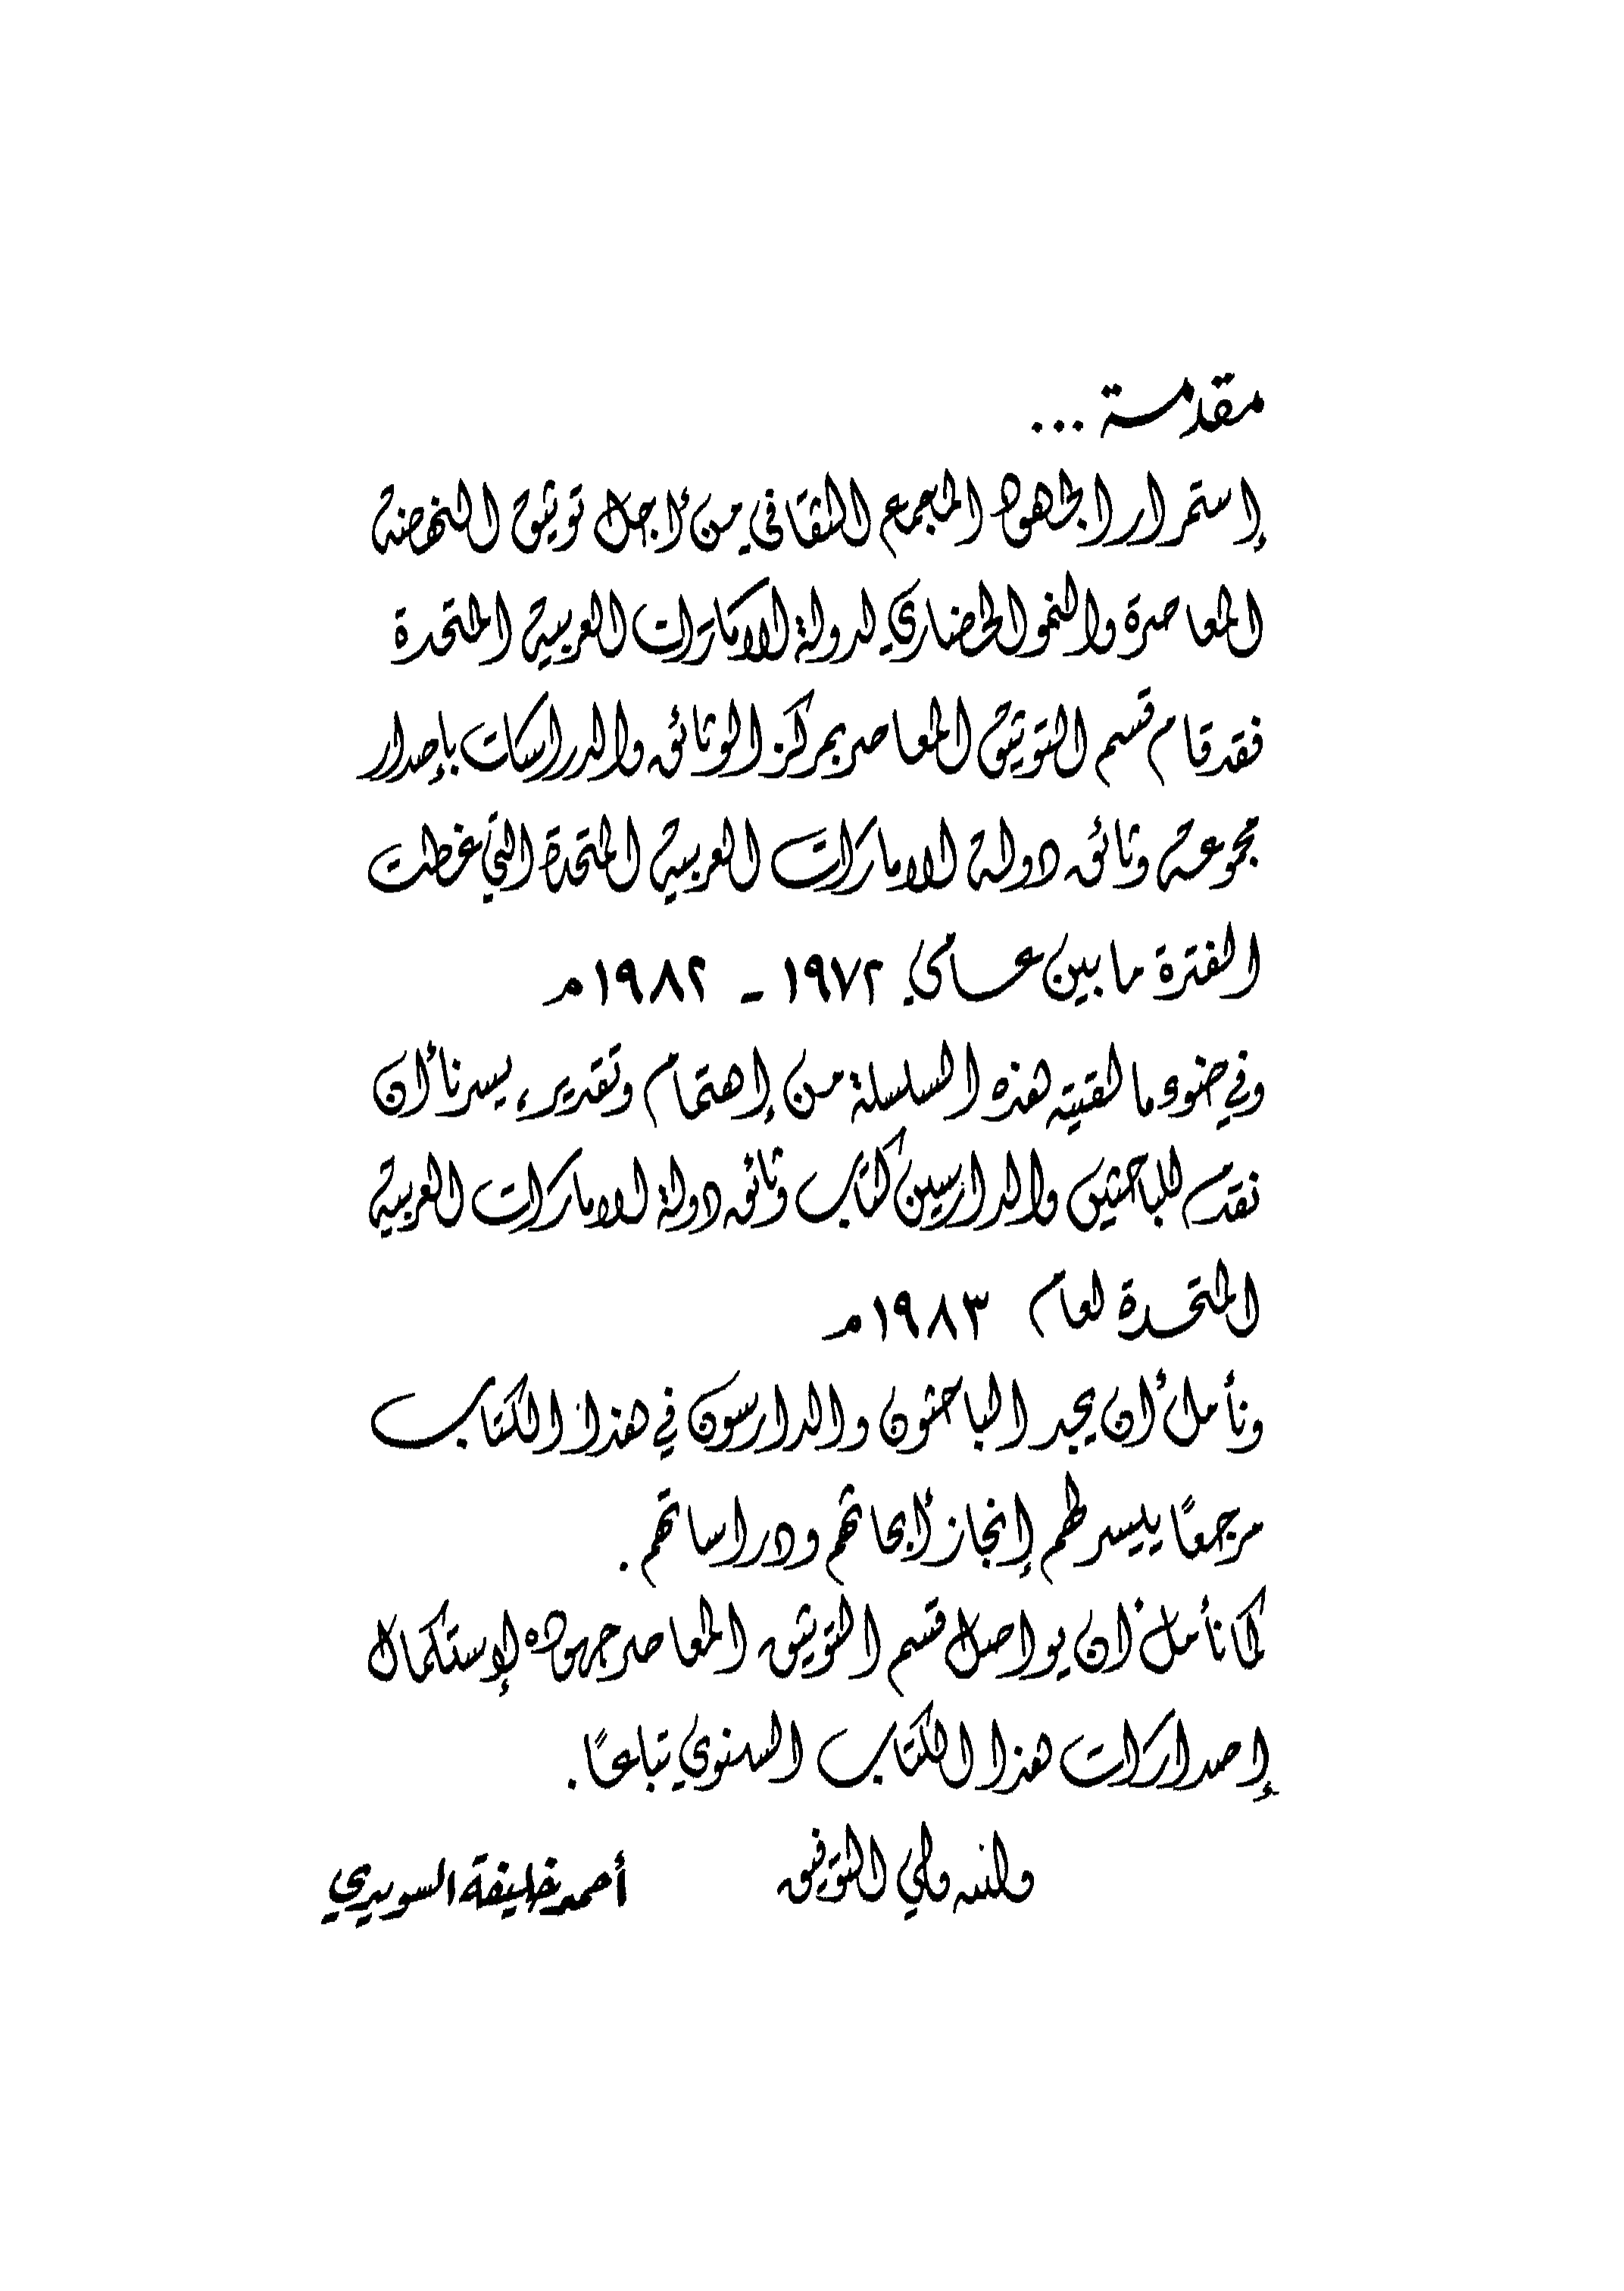 مقدمة ...
إستمرارا لجهود المجمع الثقافي من أجل توثيق النهضة
المعاصرة والنمو الحضاري لدولة الامارات العربية المتحدة
فقد قام قسم التوثيق المعاصر بمركز الوثائق والدراسات بإصدار
مجموعة وثائق دولة الامارات العربية المتحدة التي غطت
الفترة ما بين عامي ١٩٧٢ - ١٩٨٢م
وفي ضوء ما لقيته هذه السلسلة من إهتمام وتقدير، يسرنا أن
نقدم للباحثين والدارسين كتاب وثائق دولة الامارات العربية
المتحدة لعام ١٩٨٣م
ونأمل أن يجد الباحثون والدارسون في هذا الكتاب
مرجعًا ييسر لهم إنجاز أبحاثهم ودراساتهم .
كما نأمل أن يواصل قسم التوثيق المعاصر جهوده لإستكمال
إصدارات هذا الكتاب السنوي تباعًا .
والله ولي التوفيق
أحمد خليفة السويدي